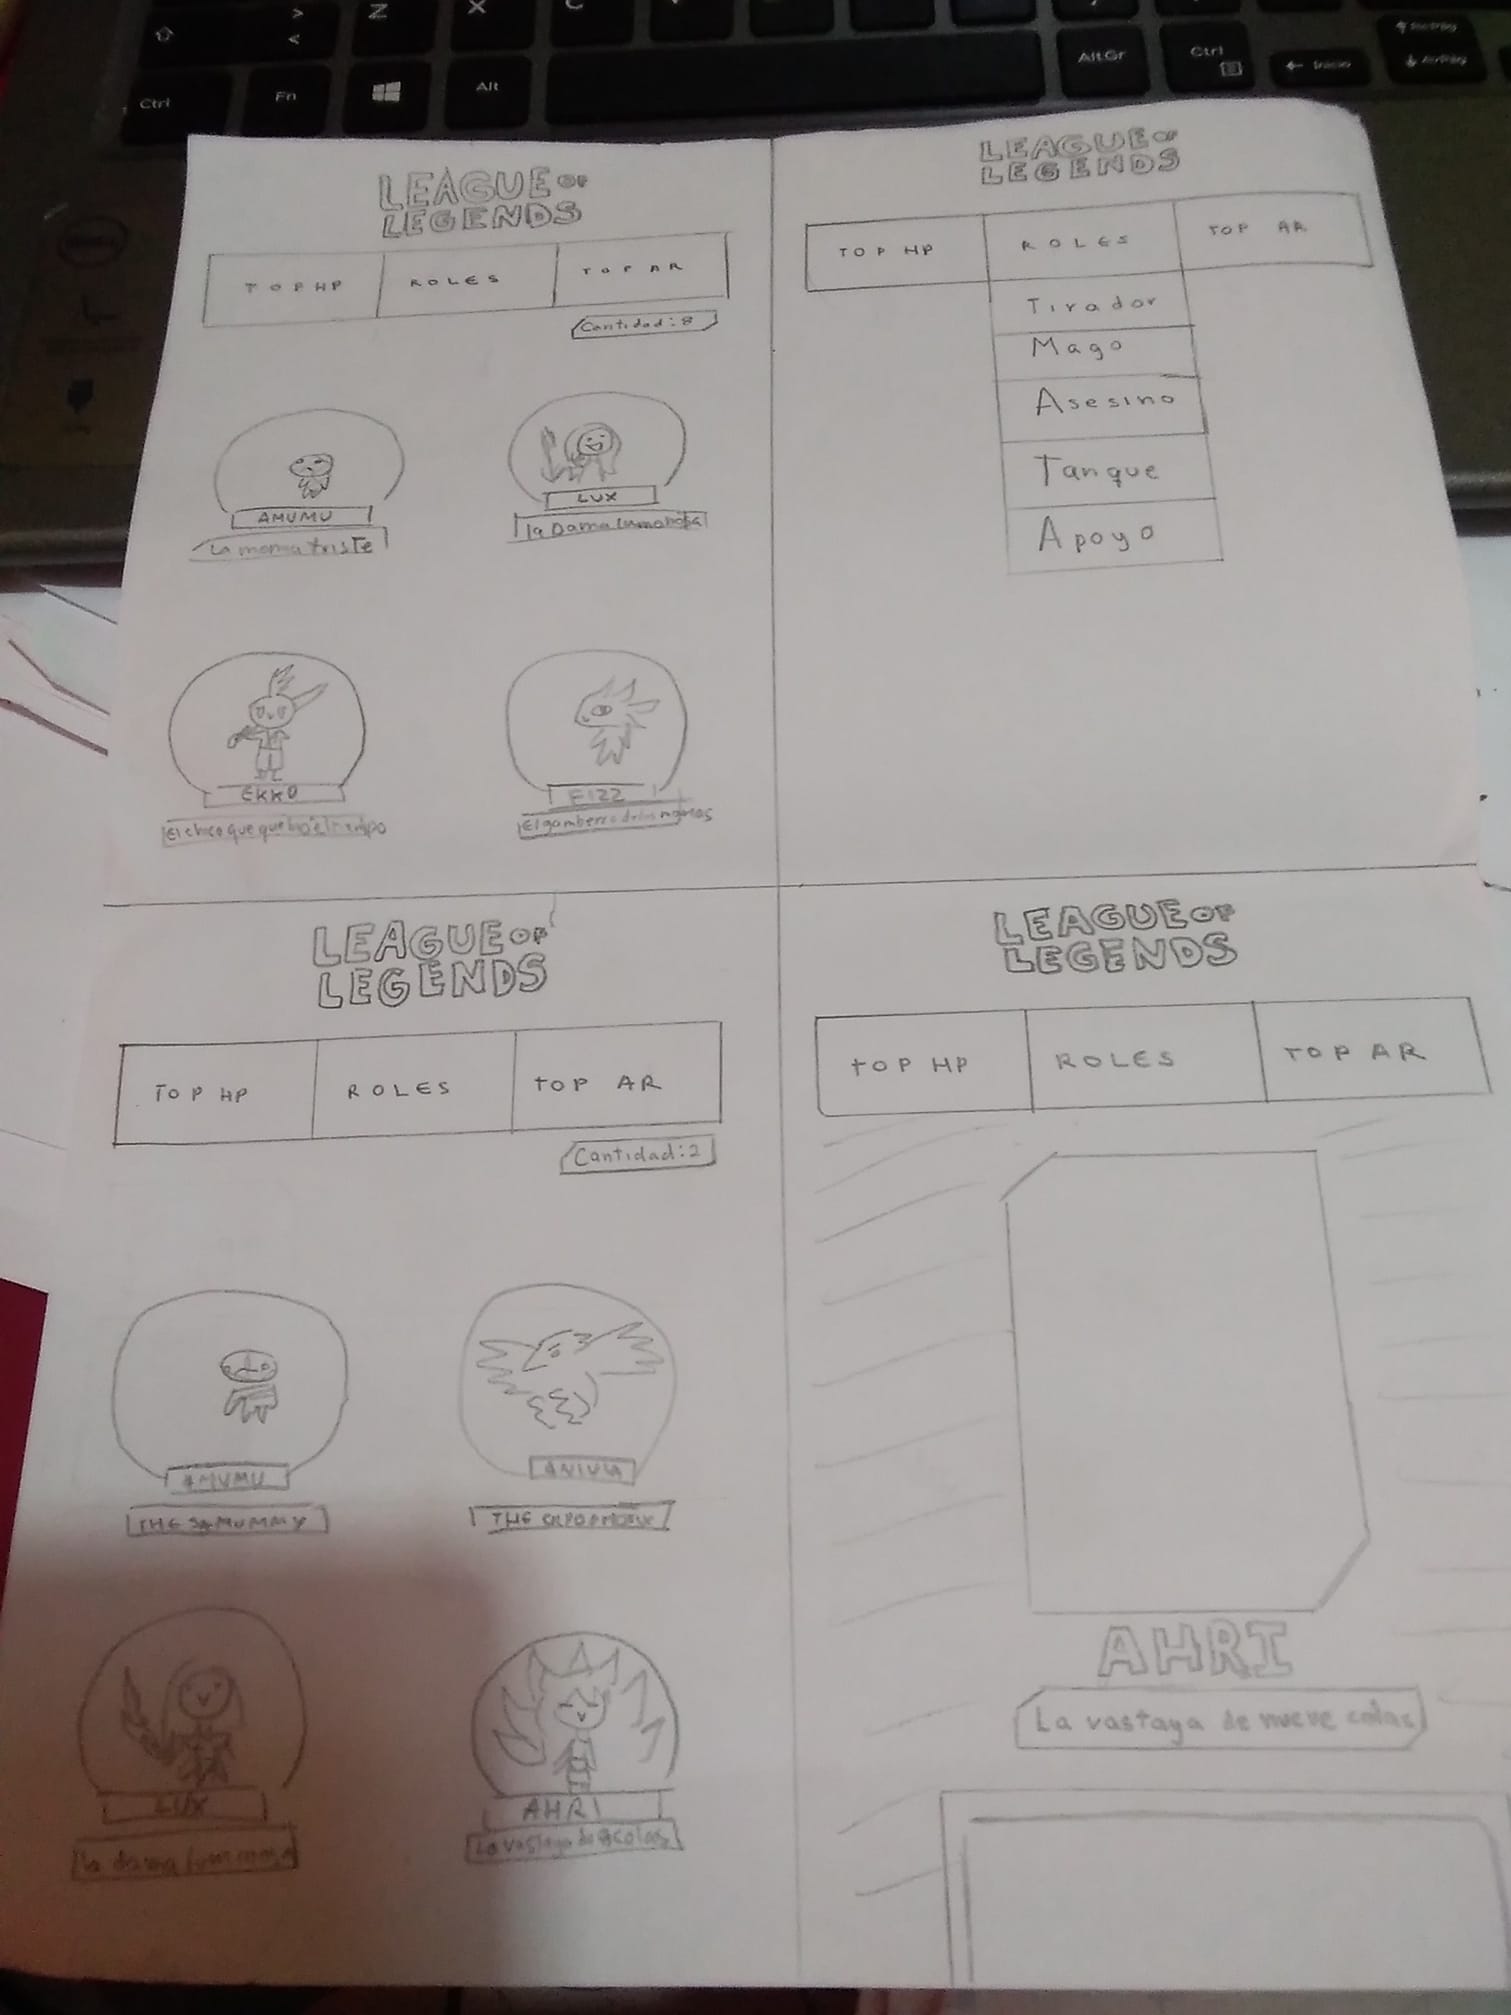 Z
X
C
>
<
Ctrl
Fn
Alt
AltGr
Ctrl
← Inicio
LEAGUE OF
LEGENDS
TOP HP
ROLES
TOP AR
Cantidad: 8
AMUMU
La momia triste
LUX
la Dama Luminosa
EKKO
El chico que quebró el tiempo
FIZZ
El gamberro de las mareas
LEAGUE OF
LEGENDS
TOP HP
ROLES
TOP AR
Tirador
Mago
Asesino
Tanque
Apoyo
LEAGUE OF
LEGENDS
TOP HP
ROLES
TOP AR
Cantidad: 2
AMUMU
THE
ANIVIA
THE
LUX
la dama luminosa
AHRI
La vastaya de 9 colas
LEAGUE OF
LEGENDS
TOP HP
ROLES
TOP AR
AHRI
La vastaya de nueve colas